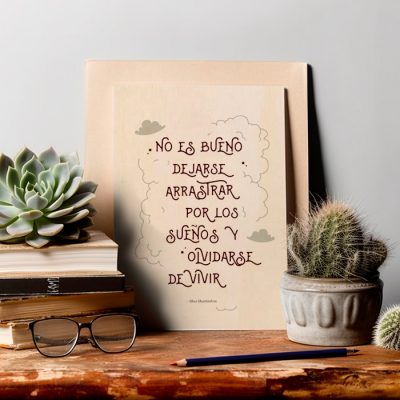 NO ES BUENO
DEJARSE
ARRASTRAR
POR LOS
SUEÑOS Y
OLVIDARSE
DE VIVIR